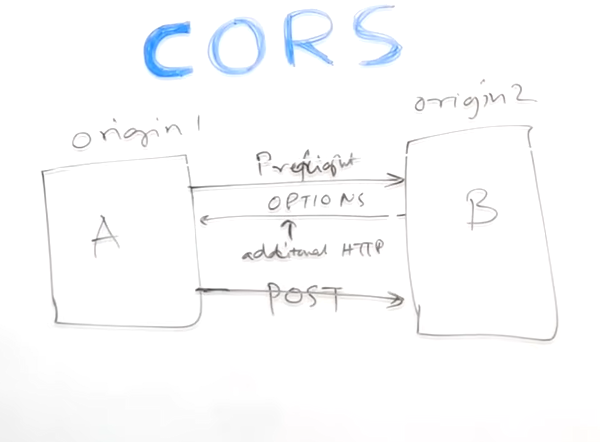 CORS
origin 1
origin 2
Preflight
OPTIONS
A
B
additional HTTP
POST